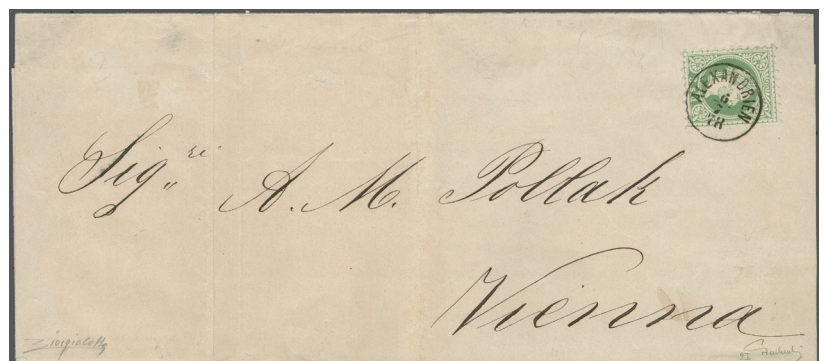 ALEXANDRIEN
6
7
78
Sig.ri A. M. Pollak
Vienna